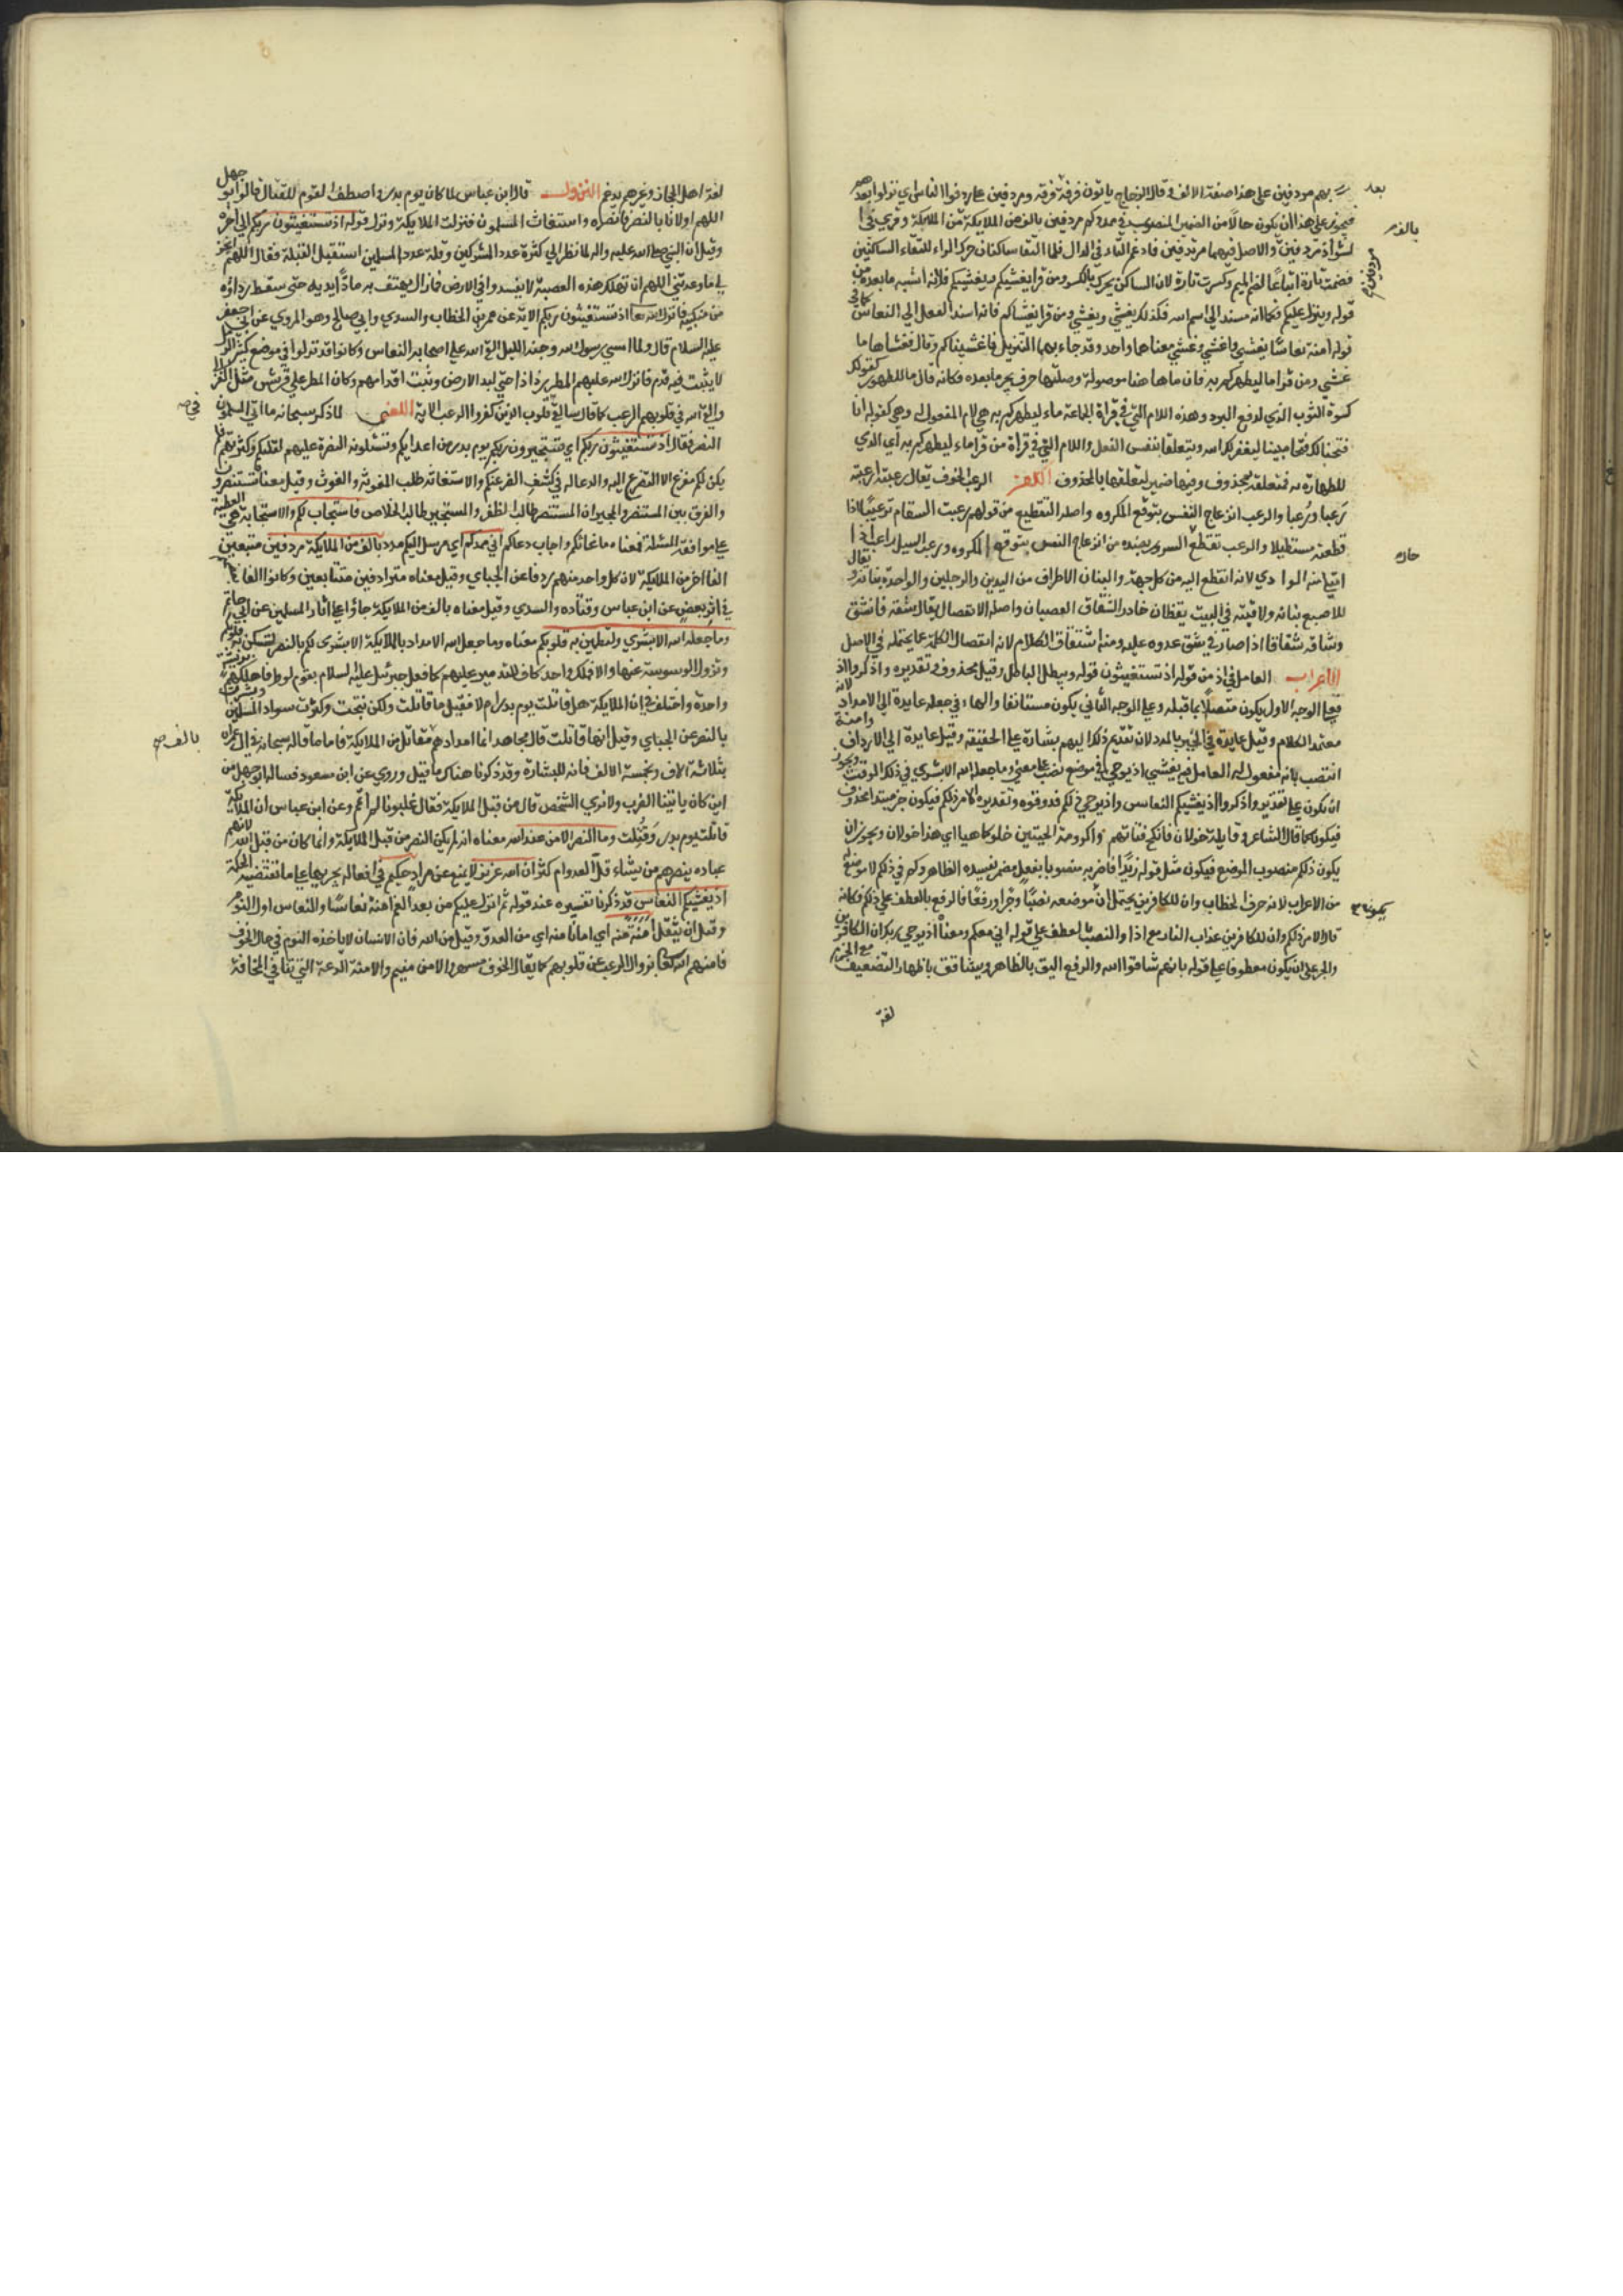 بهم مردفين على هذا صفة الالف وقال الزجاج ياتون فرقة فرقة ومردفين على اردفوا الناس اي نزلوا بعدهم
فيجوز على هذا ان يكون حالا من الضمير المنصوب في ممدكم مردفين بالف من الملايكة وقري في
لشواذ مردفين والاصل فيهما مرتدفين فادغم التاء في الدال فلما التقا ساكنان حرك الراء للتقاء الساكنين
فضمت تارة اتباعا لضم الميم وكسرت تارة لان الساكن يحرك بالكسر ومن قرا يغشيكم ويغشيكم فلانه اشبه مابعده من
قوله وينزل عليكم فكما انه مسند الي اسم الله فكذلك يغشي ويغشي ومن قرا يغشاكم فانه اسند الفعل الي النعاس كما في
قوله امنة نعاسا يغشي واغشي وغشي معناها واحد وقد جاء بهما التنزيل فاغشيناكم وقال فغشاها ما
غشي ومن قرا ما ليطهركم به فان ما هاهنا موصولة وصلتها حرف جر مابعده فكانه قال ما للطهور كقولك
كسوة الثوب الذي لدفع البرد وهذه اللام التي في قراة الجماعة ماء ليطهركم به هي لام المفعول له وهي كقوله انا
فتحنا لك فتحا مبينا ليغفر لك الله ويتعلقا بنفس الفعل واللام التي في قراة من قرا ماء ليطهركم به اي الذي
للطهارة به فمتعلقة بمحذوف وفيها ضمير لتعلقها بالمحذوف اللغة الرعب الخوف يقال رعبته ارعبه
رعبا ورعبا والرعب انزعاج النفس بتوقع المكروه واصله التقطيع من قولهم رعبت السنام ترعيبا اذا
قطعته مستطيلا والرعب تقطع السرور بضده من انزعاج النفس بتوقع المكروه ورعب السيل راعب اذا
امتلا منه الوادي لانه انقطع اليه من كل جهة والبنان الاطراف من اليدين والرجلين والواحدة بنانة ويقال
للاصبع بنانة ولاقيته في البيت يقظان حاذرا الشقاق العصيان واصله الانفصال يقال شقه فانشق
وشاقه شقاقا اذا صار في شق عدوه عليه ومنه اشتقاق الكلام لانه انفصال الكلمة عما يحتمله في الاصل
الاعراب العامل في اذ من قوله اذ تستغيثون قوله ويبطل الباطل وقيل محذوف وتقديره واذكروا اذ
فعلى الوجه الاول يكون متصلا بما قبله وعلى الوجه الثاني يكون مستانفا والهاء في جعله عايدة الي الامداد لانه
معتمد الكلام وقيل عايدة في الخبر بالمدد لان تقديم ذلك اليهم بشارة على الحقيقة وقيل عايدة الي الارداف وامنة
انتصب بانه مفعول له العامل فيه يغشي اذ يوحي في موضع نصب على معني وما جعله الله الا بشري في ذلك الوقت ويجوز
ان يكون على تقدير واذكروا اذ يغشيكم النعاس واذ يوحي ذلكم فذوقوه وتقديره الامر ذلكم فيكون خبر مبتدا محذوف
فيكون كما قال الشاعر وقايلة خولان فانكح فتاتهم واكرومة الحيين خلو كما هيا اي هذا خولان ويجوز ان
يكون ذلكم منصوب الموضع فيكون مثل قوله زيدا فاضربه منصوبا بفعل مضمر يفسره الظاهر وكم في ذلكم لا موضع له
من الاعراب لانه حرف الخطاب وان للكافرين يحتمل ان موضعه نصبا وجرا ورفعا فالرفع بالعطف على ذلكم فكانه
قال الامر ذلكم وان للكافرين عذاب النار مع اذا والنصب بالعطف على قوله اني معكم ومعناه اذ يوحي ربك ان الكافرين
والجر على ان يكون معطوفا على قوله بانهم شاقوا الله والرفع اليق بالظاهر ويشاقق باظهار التضعيف مع الجزم
لغة
بعد
بالف
مردفين
لغة اهل الحجاز وغيرهم يدغم النزول قال ابن عباس لما كان يوم بدر واصطف القوم للقتال قال ابو جهل
اللهم اولانا بالنصر فانصره واستغاث المسلمون فنزلت الملايكة ونزل قوله اذ تستغيثون ربكم الي اخره
وقيل ان النبي صلى الله عليه واله لما نظر الي كثرة عدد المشركين وقلة عدد المسلمين استقبل القبلة وقال اللهم انجز
لي ما وعدتني اللهم ان تهلك هذه العصبة لا يعبد في الارض فما زال يهتف به مادا يديه حتى سقط رداؤه
من منكبيه فانزل الله تعالى اذ تستغيثون ربكم الاية عن عمر بن الخطاب والسدي وابي صالح وهو المروي عن ابي جعفر
عليه السلام قال ولما امسي رسول الله وجنه الليل القي الله على اصحابه النعاس وكانوا قد نزلوا في موضع كثير الرمل
لا يثبت فيه قدم فانزل الله عليهم المطر رذاذا حتى لبد الارض وثبت اقدامهم وكان المطر على قريش مثل العزالي
والقي الله في قلوبهم الرعب كما قال سالقي في قلوب الذين كفروا الرعب الاية المعنى لما ذكر سبحانه ما اتى المسلمون
النصر فقال اذ تستغيثون ربكم اي تستجيرون بربكم يوم بدر من اعدايكم وتسئلونه النصرة عليهم لقلتكم وكثرتهم فلم
يكن لكم مفزع الا التضرع اليه والدعاء له في كشف الضر عنكم والاستغاثة طلب المغوثة والغوث وقيل معناه تستنصرون
والفرق بين المستنصر والمستجير ان المستنصر طالب الظفر والمستجير طالب الخلاص فاستجاب لكم والاستجابة هي العطية
على موافقة المسئلة فمعناه فاغاثكم واجاب دعاكم اني ممدكم اي مرسل اليكم مددا بالف من الملايكة مردفين متبعين
الفا اخر من الملايكة لان كل واحد منهم ردفا عن الجباي وقيل معناه مترادفين متتابعين وكانوا الفا
في اثر بعض عن ابن عباس وقتادة والسدي وقيل معناه بالف من الملايكة جاؤا على اثار المسلمين عن ابي حاتم
وما جعله الله الا بشري ولتطمين به قلوبكم معناه وما جعل الله الامداد بالملايكة الا بشري لكم بالنصر لتسكن به قلوبكم
وتزول الوسوسة عنها والا فملك واحد كاف للتدمير عليهم كما فعل جبرئيل عليه السلام بقوم لوط فاهلكهم بريشة
واحدة واختلف في ان الملايكة هل قاتلت يوم بدر ام لا فقيل ما قاتلت ولكن شجعت وكثرت سواد المسلمين وبشرت
بالنصر عن الجباي وقيل انها قاتلت قال مجاهد انما امدادهم مقاتل من الملايكة فاما ما قاله سبحانه في ال عمران
بثلاثة الاف وبخمسة الاف فانه للبشارة وقد ذكرنا هناك ما قيل وروي عن ابن مسعود فساله ابو جهل من
اين كان ياتينا الضرب ولا نري الشخص قال من قبل الملايكة فقال غلبونا لا انتم وعن ابن عباس ان الملايكة
قاتلت يوم بدر وقتلت وما النصر الا من عند الله معناه انه لم يكن النصر من قبل الملايكة وانما كان من قبل الله لانهم
عباده ينصر بهم من يشاء قل العدد ام كثر ان الله عزيز لا يمنع عن مراده حكيم في افعاله يجريها على ما تقتضيه الحكمة
اذ يغشيكم النعاس قد ذكرنا تفسيره عند قوله ثم انزل عليكم من بعد الغم امنة نعاسا والنعاس اول النوم
وقبل ان يثقل امنة منه اي امانا منه اي من العدو وقيل من الله فان الانسان لا ياخذه النوم في حال الخوف
فامنهم الله تعالى بزوال الرعب عن قلوبهم كما يقال الخوف مسهر والامن منيم والامنة الدعة التي تنافي المخافة
بالف